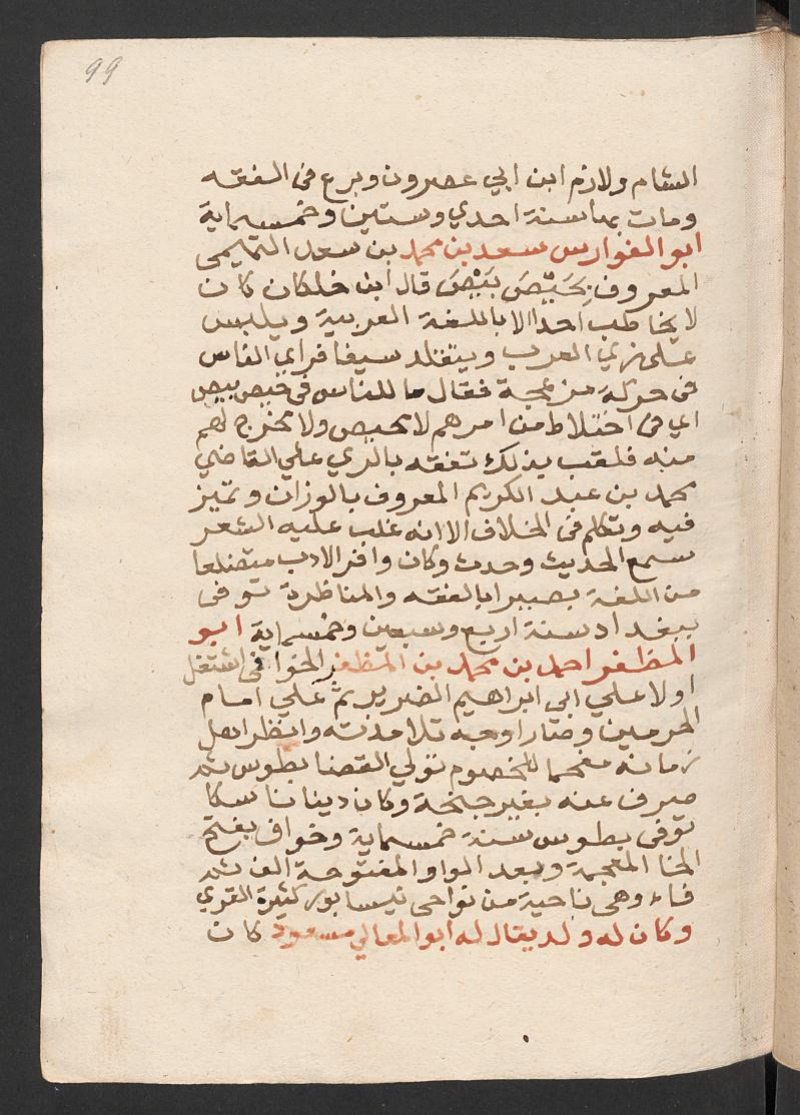 99
الشام ولازم ابن ابي عصرون وبرع في الفقه
ومات بها سنة احدي وستين وخمسماية
ابو الفوارس سعد بن محمد بن سعد التميمى
المعروف بحَيْصَ بَيْصَ قال ابن خلكان كان
لا يخاطب احدا الا باللغة العربية ويلبس
على زي العرب ويتقلد سيفا فراي الناس
فى حركة مزعجة فقال ما للناس فى حيص بيص
اي فى اختلاط من امرهم لا محيص ولا مخرج لهم
منه فلقب بذلك تفقه بالري علي القاضي
محمد بن عبد الكريم المعروف بالوزان وتميز
فيه وتكلم فى الخلاف الا انه غلب عليه الشعر
سمع الحديث وحدث وكان وافر الادب متضلعا
من اللغة بصيرا بالفقه والمناظرة توفى
ببغداد سنة اربع وسبعين وخمسماية ابو
المظفر احمد بن محمد بن المظفر الخوافى اشتغل
اولا علي ابي ابراهيم الضرير ثم علي امام
الحرمين وصار اوجه تلامذته وانظر اهل
زمانه مفحما للخصوم تولي القضا بطوس ثم
صرف عنه بغير جنحة وكان دينا ناسكا
توفى بطوس سنة خمسماية وخواف بفتح
الخا المعجمة وبعد الواو المفتوحة الف ثم
فاء وهى ناحية من نواحى نيسابور كثيرة القري
وكان له ولد يقال له ابو المعالي مسعود كان